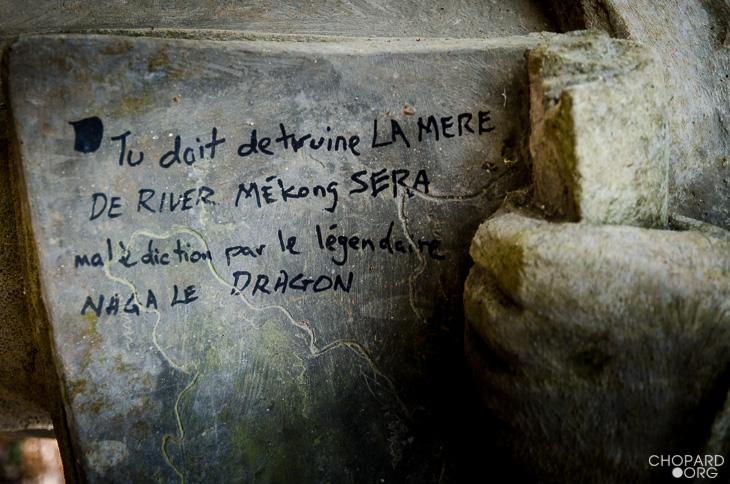 Tu doit detruine LA MERE
DE RIVER MéKong SERA
malèdiction par le légendaire
NAGA LE DRAGON
CHOPARD
ORG